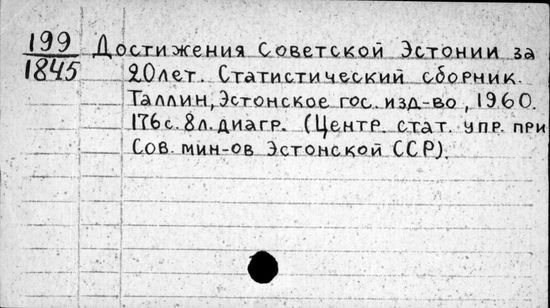 199 Достижения Советской Эстонии за
1845 20 лет. Статистический сборник.
Таллин, Эстонское гос. изд-во, 1960.
176 с. 8 л. диагр. (Центр. стат. упр. при
Сов. мин-ов Эстонской ССР).